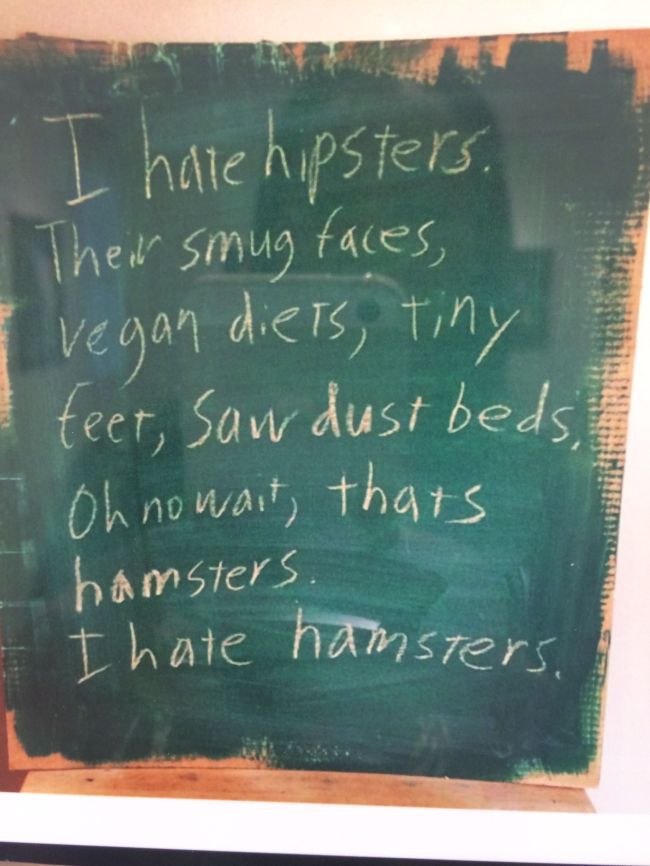 I hate hipsters.
Their smug faces,
vegan diets, tiny
feet, Sawdust beds,
Oh no wait, thats
hamsters.
I hate hamsters.